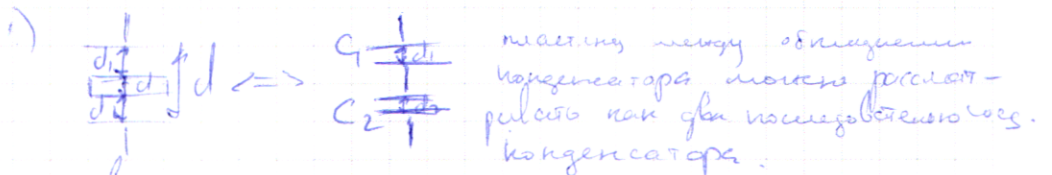 1)
d₁ d d₂ d <=> C₁ d₁ C₂ d₂
пластину между обкладками
конденсатора можно рассмат-
ривать как два последовательно соед.
конденсатора.